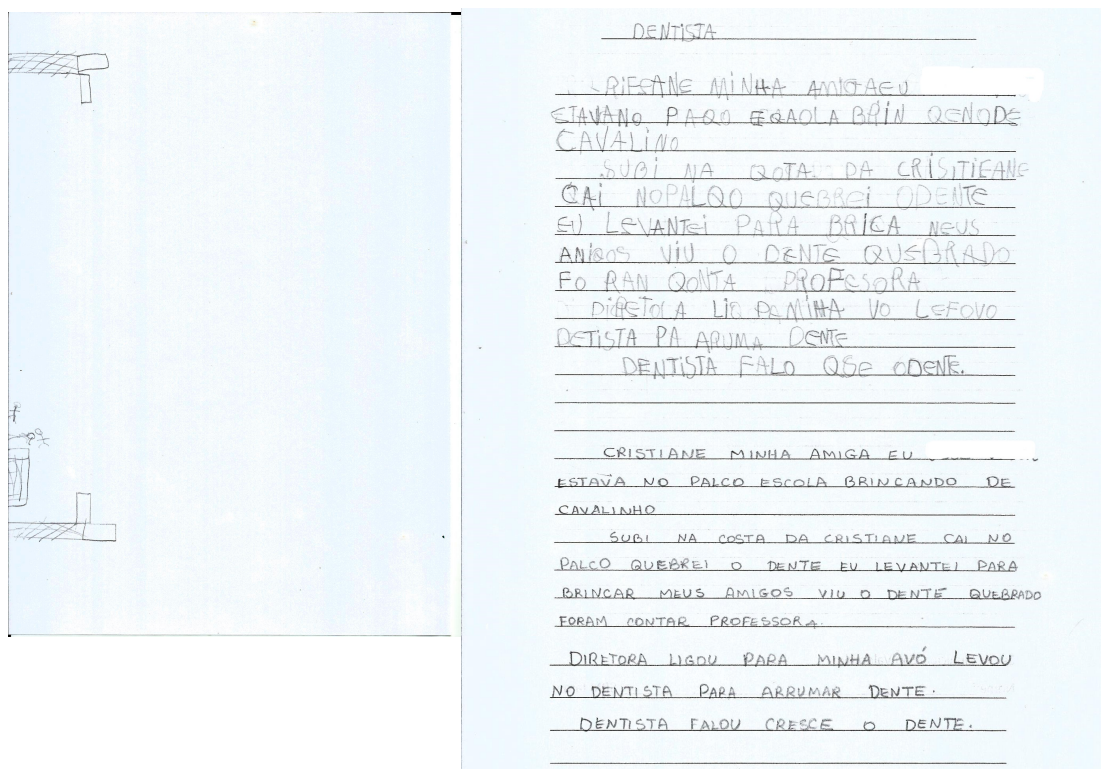 DENTISTA
RIFSANE MINHA AMIGAEU
ESTAVANO PAQO EQAOLA BRIN QENODE
CAVALINO
SUBI NA QOTA DA CRISITIEANE
CAI NOPALQO QUEBREI ODENTE
EU LEVANTEI PARA BRICA NEUS
ANIGOS VIU O DENTE QUEBRADO
FO RAN QONTA PROFESORA
DIRETOLA LIG PAMINHA VO LEFOVO
DETISTA PA ARUMA DENTE
DENTISTA FALO QSE ODENTE.
CRISTIANE MINHA AMIGA EU
ESTAVA NO PALCO ESCOLA BRINCANDO DE
CAVALINHO
SUBI NA COSTA DA CRISTIANE CAI NO
PALCO QUEBREI O DENTE EU LEVANTEI PARA
BRINCAR MEUS AMIGOS VIU O DENTE QUEBRADO
FORAM CONTAR PROFESSORA.
DIRETORA LIGOU PARA MINHA AVÓ LEVOU
NO DENTISTA PARA ARRUMAR DENTE.
DENTISTA FALOU CRESCE O DENTE.